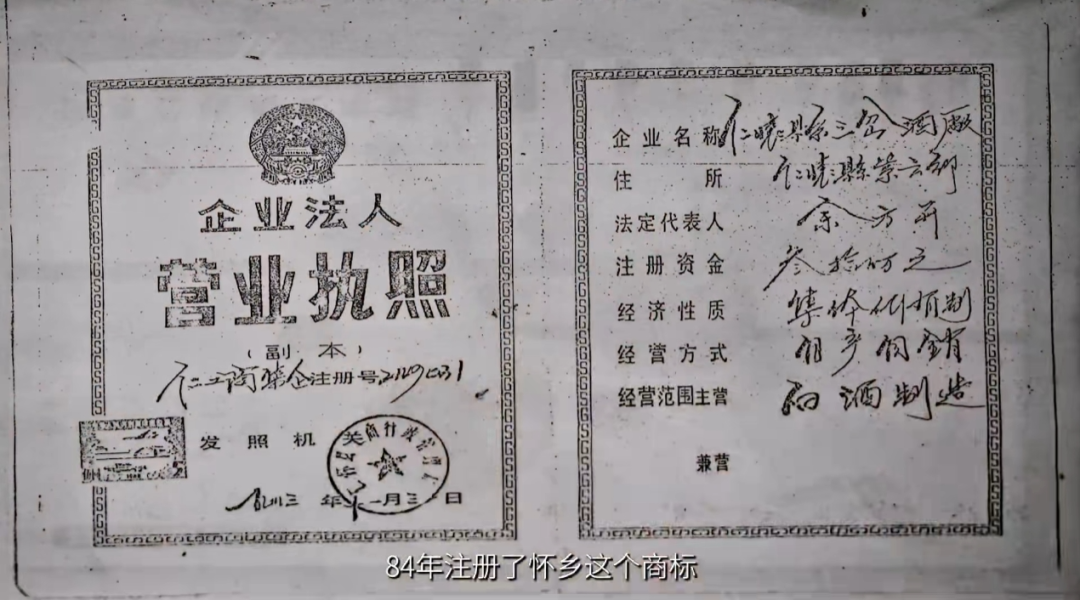 企业法人
营业执照
(副本)
注册号
发照机关
年 月 日
企业名称 仁怀县三合酒厂
住所 仁怀县
法定代表人 余方开
注册资金 叁拾万元
经济性质 集体所有制
经营方式 自产自销
经营范围主营 白酒制造
兼营
84年注册了怀乡这个商标